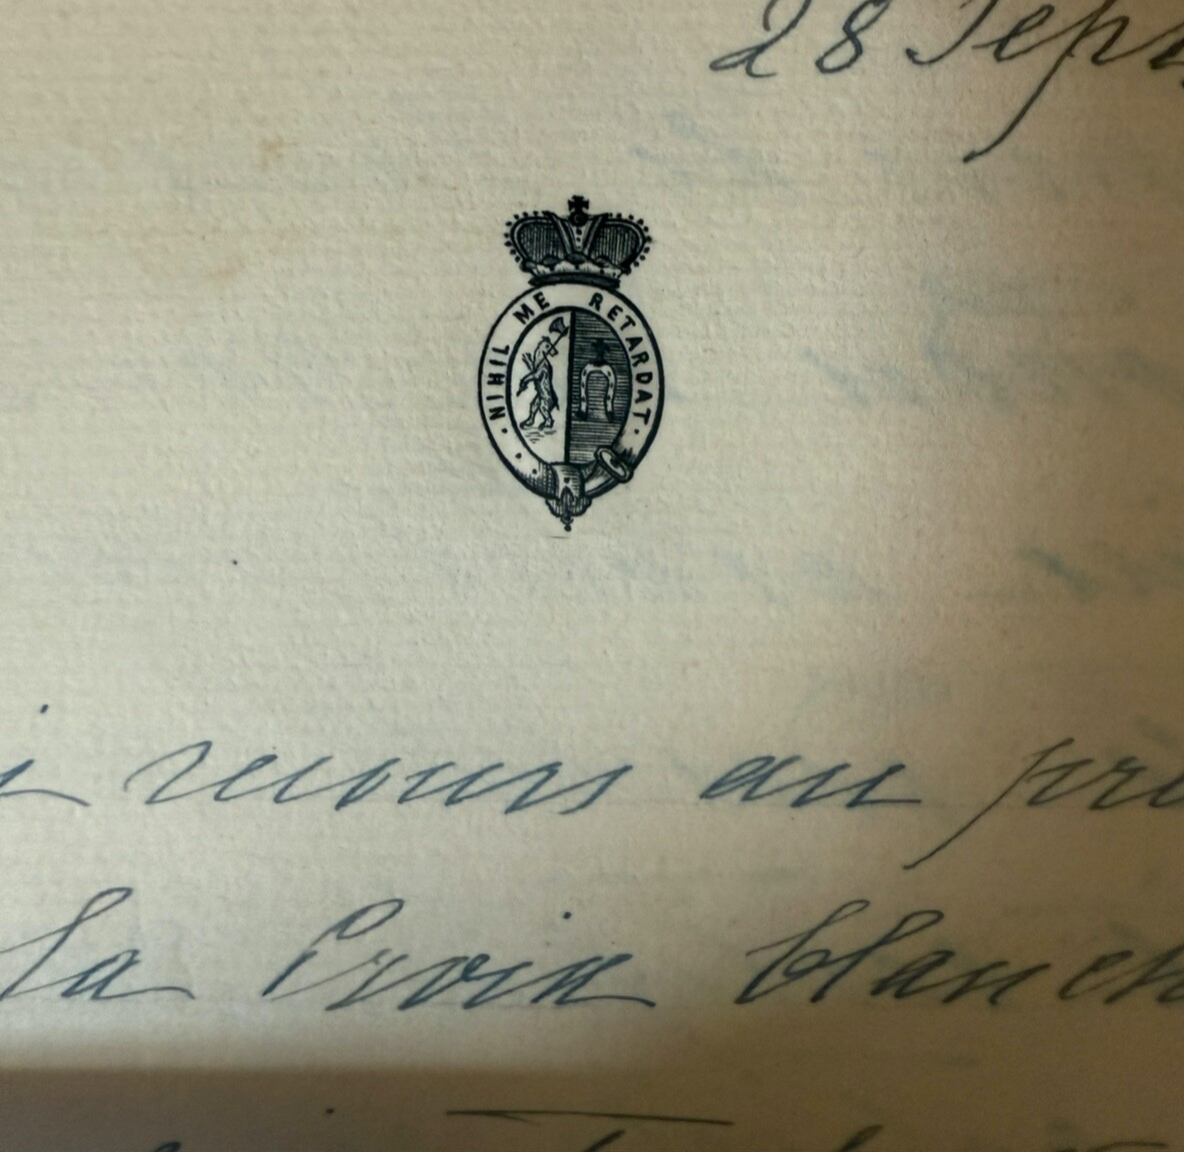 28 Sept
NIHIL ME RETARDAT
recours au pré
la Croix blanch